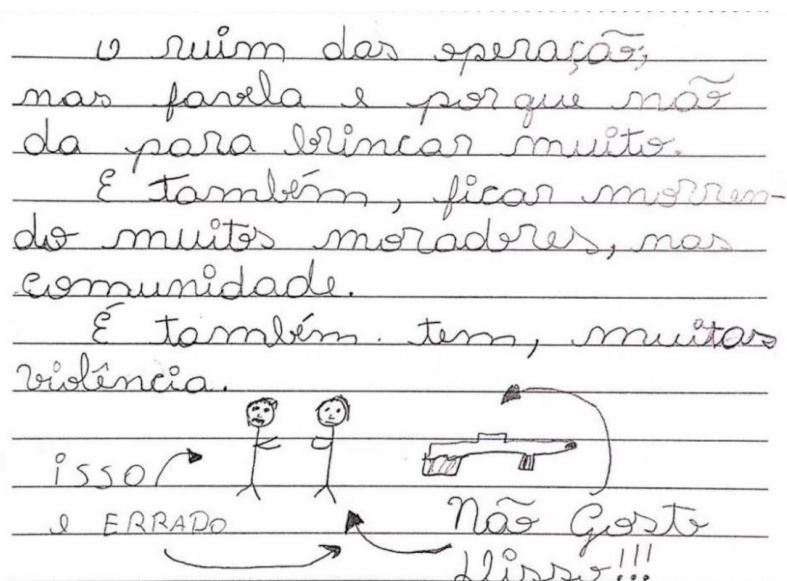 O ruim das operação,
nas favela e por que não
da para brincar muito.
E também, ficar morren-
do muitos moradores, nas
comunidade.
É também. tem, muitas
violência.
isso
e ERRADO
Não Gosto
disso!!!